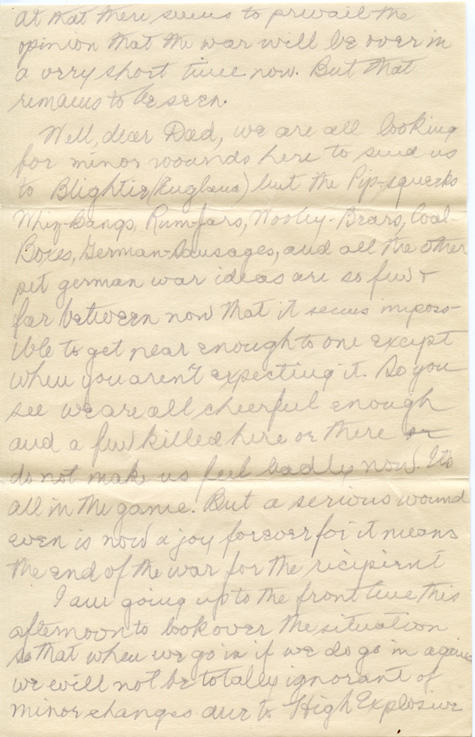 At that there seems to prevail the
opinion that the war will be over in
a very short time now. But that
remains to be seen.
Well, dear Dad, we are all looking
for minor wounds here to send us
to Blightie (England) but the Pip-squeeks
Whiz-bangs, Rum-Jars, Wooley-Bears, Coal-
Boxes, German-Sausages, and all the other
pet german war ideas are so few &
far between now that it seems imposs-
ible to get near enough to one except
when you aren't expecting it. So you
see we are all cheerful enough
and a few killed here or there or
do not make us feel badly now. Its
all in the game. But a serious wound
even is now a joy forever for it means
the end of the war for the recipient
I am going up to the front line this
afternoon to look over the situation
so that when we go in if we do go in again
we will not be totally ignorant of
minor changes due to High Explosive